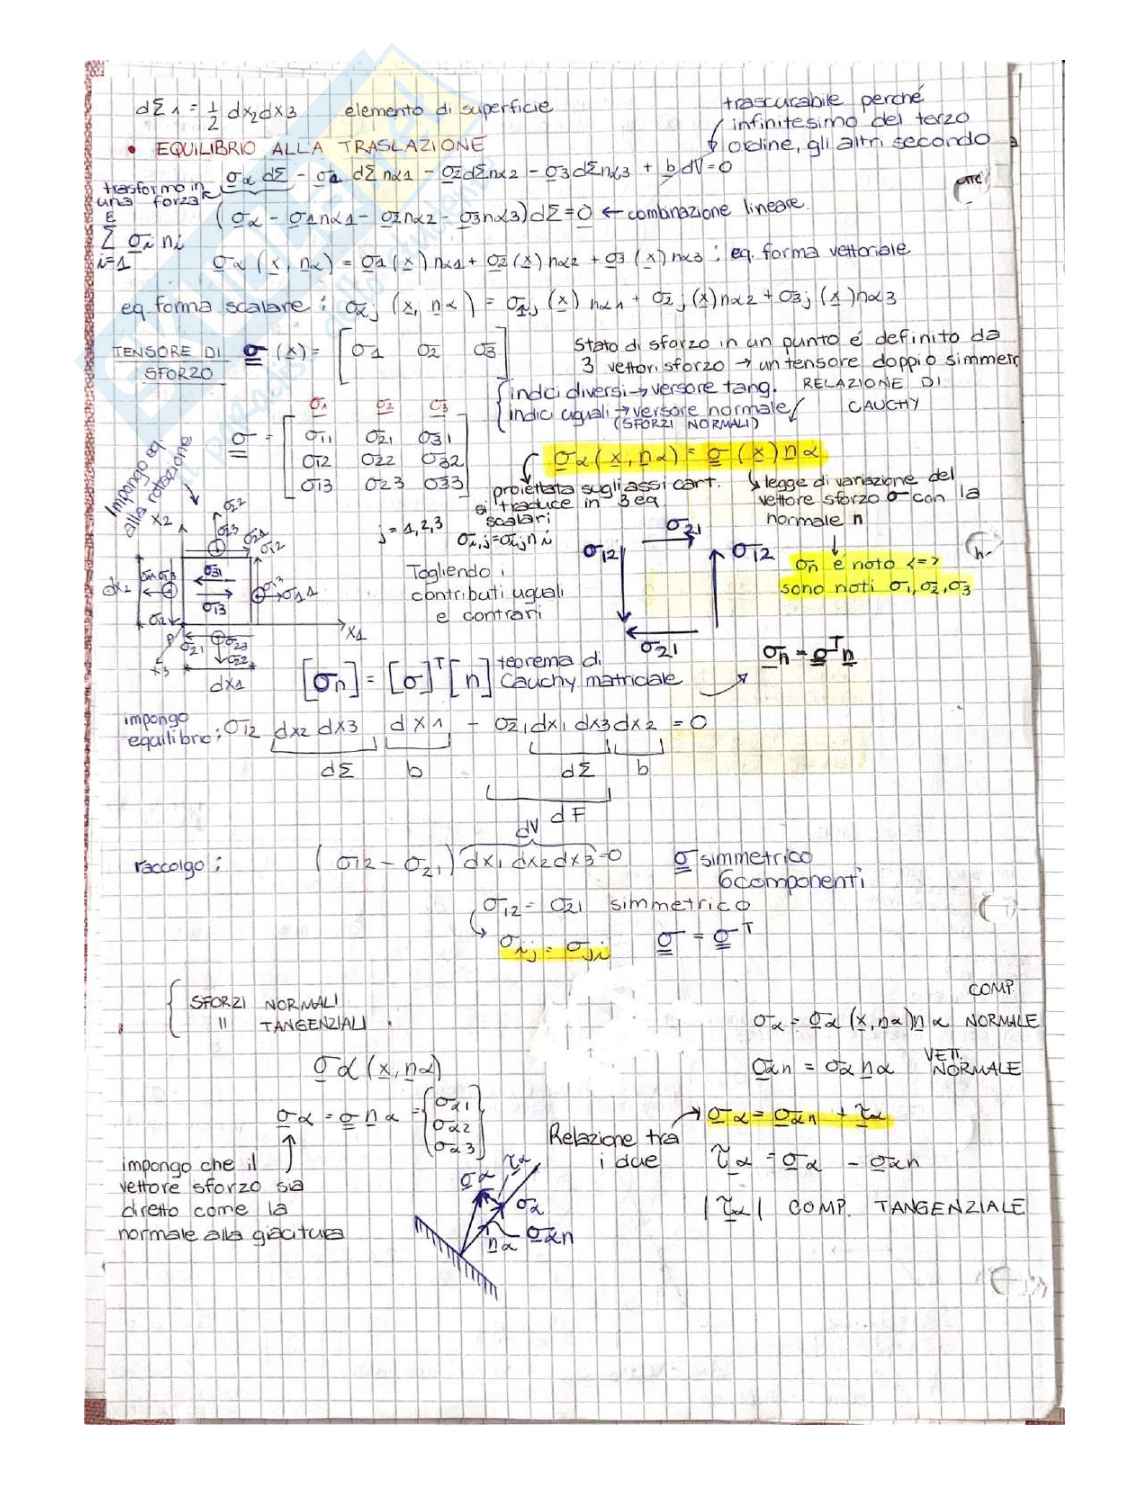 dΣ1 = 1/2 dx2dx3 elemento di superficie
trascurabile perché
infinitesimo del terzo
ordine, gli altri secondo
• EQUILIBRIO ALLA TRASLAZIONE
σα dΣ - σ1 dΣnα1 - σ2dΣnα2 - σ3dΣnα3 + b dV = 0
trasformo in
una forza
(σα - σ1nα1 - σ2nα2 - σ3nα3)dΣ = 0 ← combinazione lineare
Σ σi ni
i=1
σα (x, nα) = σ1(x) nα1 + σ2(x) nα2 + σ3(x) nα3 : eq. forma vettoriale
eq. forma scalare : σαj (x, nα) = σ1j (x) nα1 + σ2j (x)nα2 + σ3j (x)nα3
TENSORE DI
SFORZO
σ (x) = [σ1 σ2 σ3]
Stato di sforzo in un punto é definito da
3 vettori sforzo → un tensore doppio simmetr
{ indici diversi → versore tang.
indici uguali → versore normale
(SFORZI NORMALI)
RELAZIONE DI
CAUCHY
σ1 σ2 σ3
σ = [σ11 σ21 σ31
σ12 σ22 σ32
σ13 σ23 σ33]
σα (x, nα) = σ (x) nα
proiettata sugli assi cart.
si traduce in 3 eq
scalari
j = 1,2,3
↳ legge di variazione del
vettore sforzo σ con la
normale n
Impongo eq
alla rotazione
x2
σ22
σ12
dx2
σ31
σ13
σ11
x1
σ21
x3
dx1
Togliendo i
contributi uguali
e contrari
σ21
σ12
σ12
σ21
σn é noto <=>
sono noti σ1, σ2, σ3
σn = σT n
[σn] = [σ]T [n] teorema di
Cauchy matriciale
impongo
equilibrio: σ12 dx2 dx3 dx1 - σ21dx1 dx3 dx2 = 0
dΣ b dΣ b
dF
dV
raccolgo : (σ12 - σ21) dx1 dx2 dx3 = 0
σ simmetrico
6 componenti
σ12 = σ21 simmetrico
σij = σji σ = σT
{ SFORZI NORMALI
" TANGENZIALI
COMP.
σα = σα (x, nα) nα NORMALE
σα (x, nα)
σαn = σα nα VETT. NORMALE
σα = σ nα = {σα1
σα2
σα3}
Relazione tra
i due
σα = σαn + τα
τα = σα - σαn
|τα| COMP. TANGENZIALE
impongo che il
vettore sforzo sia
diretto come la
normale alla giacitura
σα
τα
σα
nα
σαn